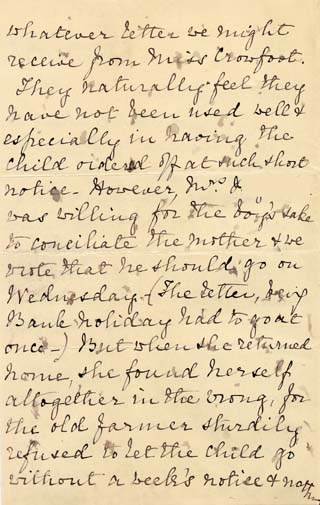 whatever letter we might
receive from Miss Crowfoot.
They naturally feel they
have not been used well &
especially in having the
child ordered off at such short
notice - However, Mrs D
was willing for the boy's sake
to conciliate the mother & we
wrote that he should go on
Wednesday - (The letter, being
Bank holiday had to go at
once -) But when she returned
home, she found herself
altogether in the wrong, for
the old farmer sturdily
refused to let the child go
without a week's notice &